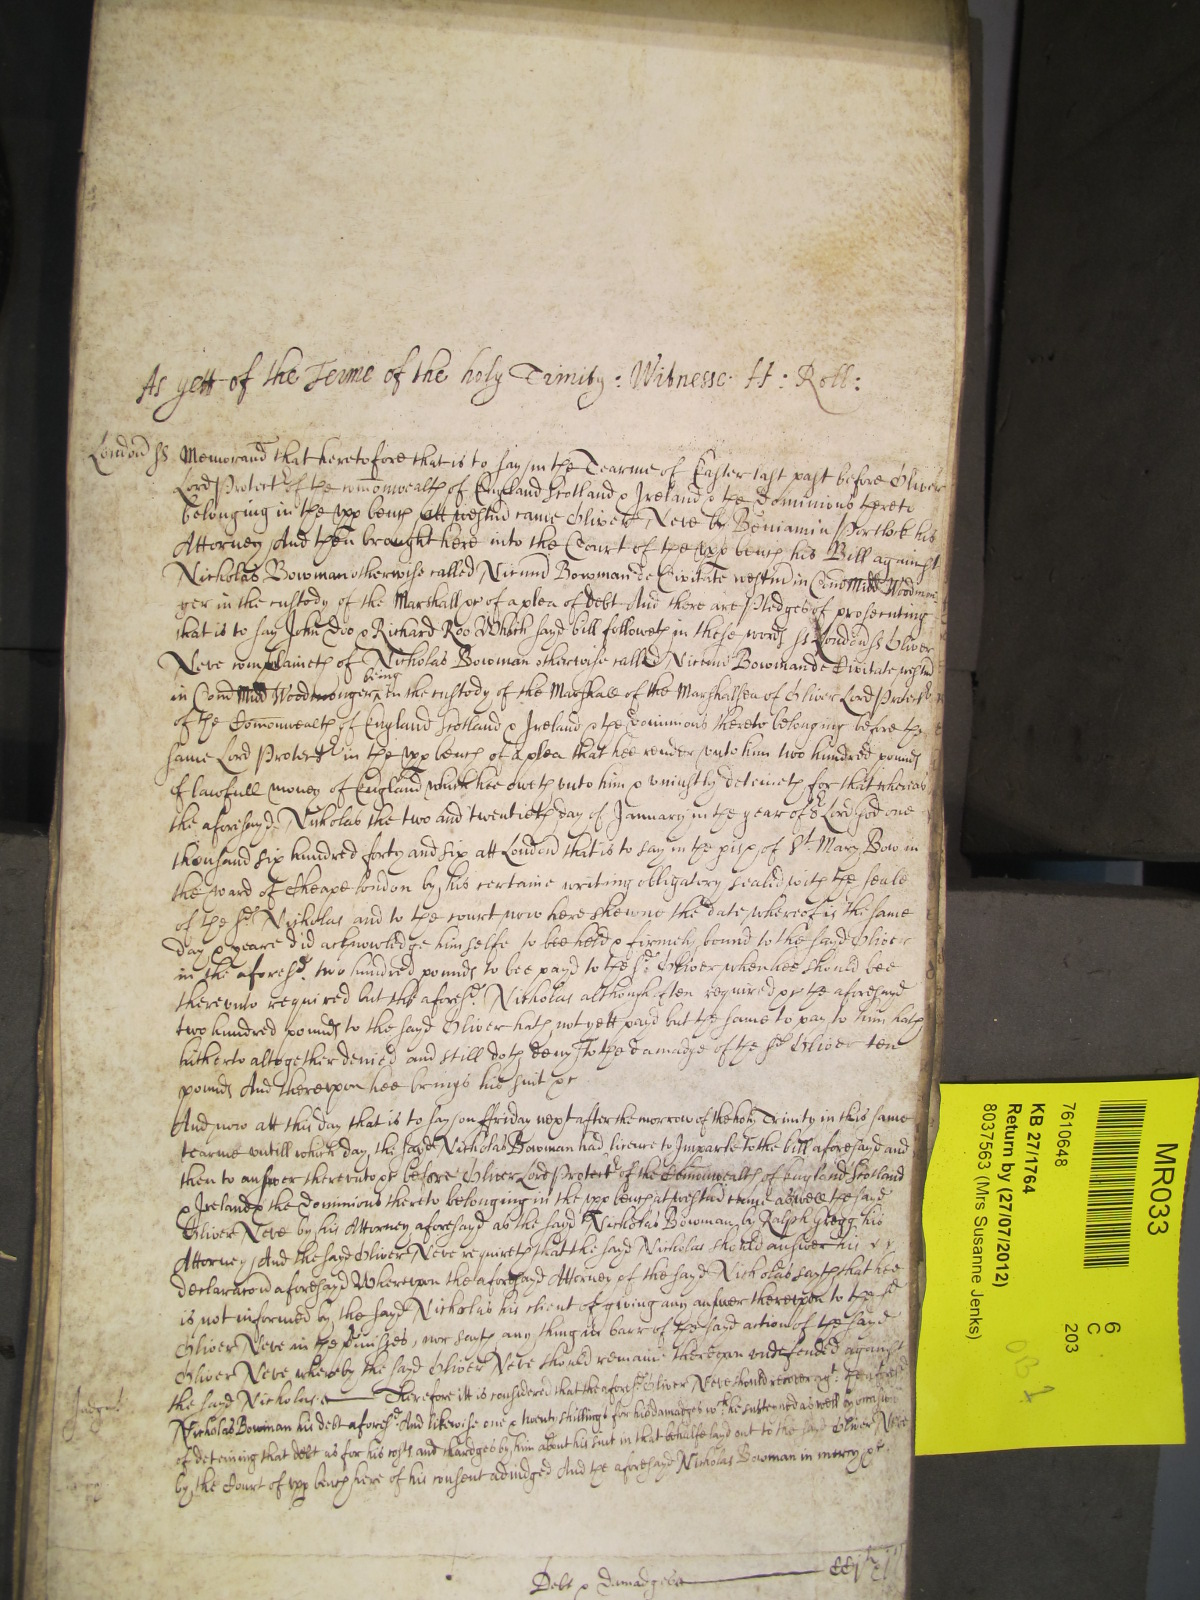 As yett of the Terme of the holy Trinity : Witnesse H : Roll :
London ss Memorand that heretofore that is to say in the Tearme of Easter last past before Oliver
Lord Protectr of the comonwealth of England Scotland & Ireland & the Dominions thereto
belonging in the upp bench att westm came Oliver Neve by Beniamin Portlock his
Attorney And then brought here into the Court of the upp bench his Bill against
Nicholas Bowman otherwise called Nicum Bowman de Civitate westm in Com Midd Woodmon
ger in the custody of the Marshall &c of a plea of debt And there are Pledges of prosecuting
that is to say John Doo & Richard Roo Which sayd bill followeth in these words ss London ss Oliver
Neve complaineth of Nicholas Bowman otherwise called Nicum Bowman de Civitate westm
in Com Midd Woodmonger being in the custody of the Marshall of the Marshalsea of Oliver Lord Protectr
of the Comonwealth of England Scotland & Ireland & the Dominions thereto belonging before the
same Lord Protectr in the upp bench of a plea that hee render unto him two hundred pounds
of lawfull money of England which hee oweth unto him & uniustly deteineth for that whereas
the aforesayd Nicholas the two and twentieth day of January in the year of or Lord God one
thousand six hundred forty and six att London that is to say in the pish of St Mary Bow in
the ward of Cheape London by his certaine writing obligatory sealed with the seale
of the sd Nicholas and to the court now here shewne the date whereof is the same
day & yeare did acknowledge himselfe to bee held & firmely bound to the sayd Oliver
in the aforesd two hundred pounds to bee payd to the sd Oliver when hee should bee
thereunto required but the aforesd Nicholas although often required &c the aforesayd
two hundred pounds to the sayd Oliver hath not yett payd but the same to pay to him hath
hitherto altogether denied and still doth deny To the damadge of the sd Oliver ten
pounds And thereupon hee brings his suit &c
And now att this day that is to say on ffriday next after the morrow of the holy Trinity in this same
tearme untill which day the sayd Nicholas Bowman had licence to Imparle to the bill aforesayd and
then to answer thereunto &c before Oliver Lord Protectr of the Comonwealth of England Scotland
& Ireland & the Dominions thereto belonging in the upp bench at westm came aswell the sayd
Oliver Neve by his Attorney aforesayd as the sayd Nicholas Bowman by Ralph Gregg his
Attorney And the sayd Oliver Neve requireth that the sayd Nicholas should answer his
declaracon aforesayd Whereupon the aforesayd Attorney of the sayd Nicholas sayth that hee
is not informed by the sayd Nicholas his client of giving any answer thereupon to the sd
Oliver Neve in the pmisses, nor sayth any thing in barr of the sayd action of the sayd
Oliver Neve whereby the sayd Oliver Neve should remaine thereupon undefended against
the sayd Nicholas &c Therefore itt is considered that the aforesd Oliver Neve should recover agt the aforesd
Judgmt
Nicholas Bowman his debt aforesd And likewise one & twenty shillings for his damadges wch he susteened as well by occasion
of deteining that debt as for his costs and chardges by him about his suit in that behalfe layd out to the sayd Oliver Neve
by the Court of upp bench here of his consent adiudged And the aforesayd Nicholas Bowman in mercy &c
mercy
Debt & damadges
MR033
6
C
203
7610648
KB 27/1764
Return by (27/07/2012)
8037563 (Mrs Susanne Jenks)